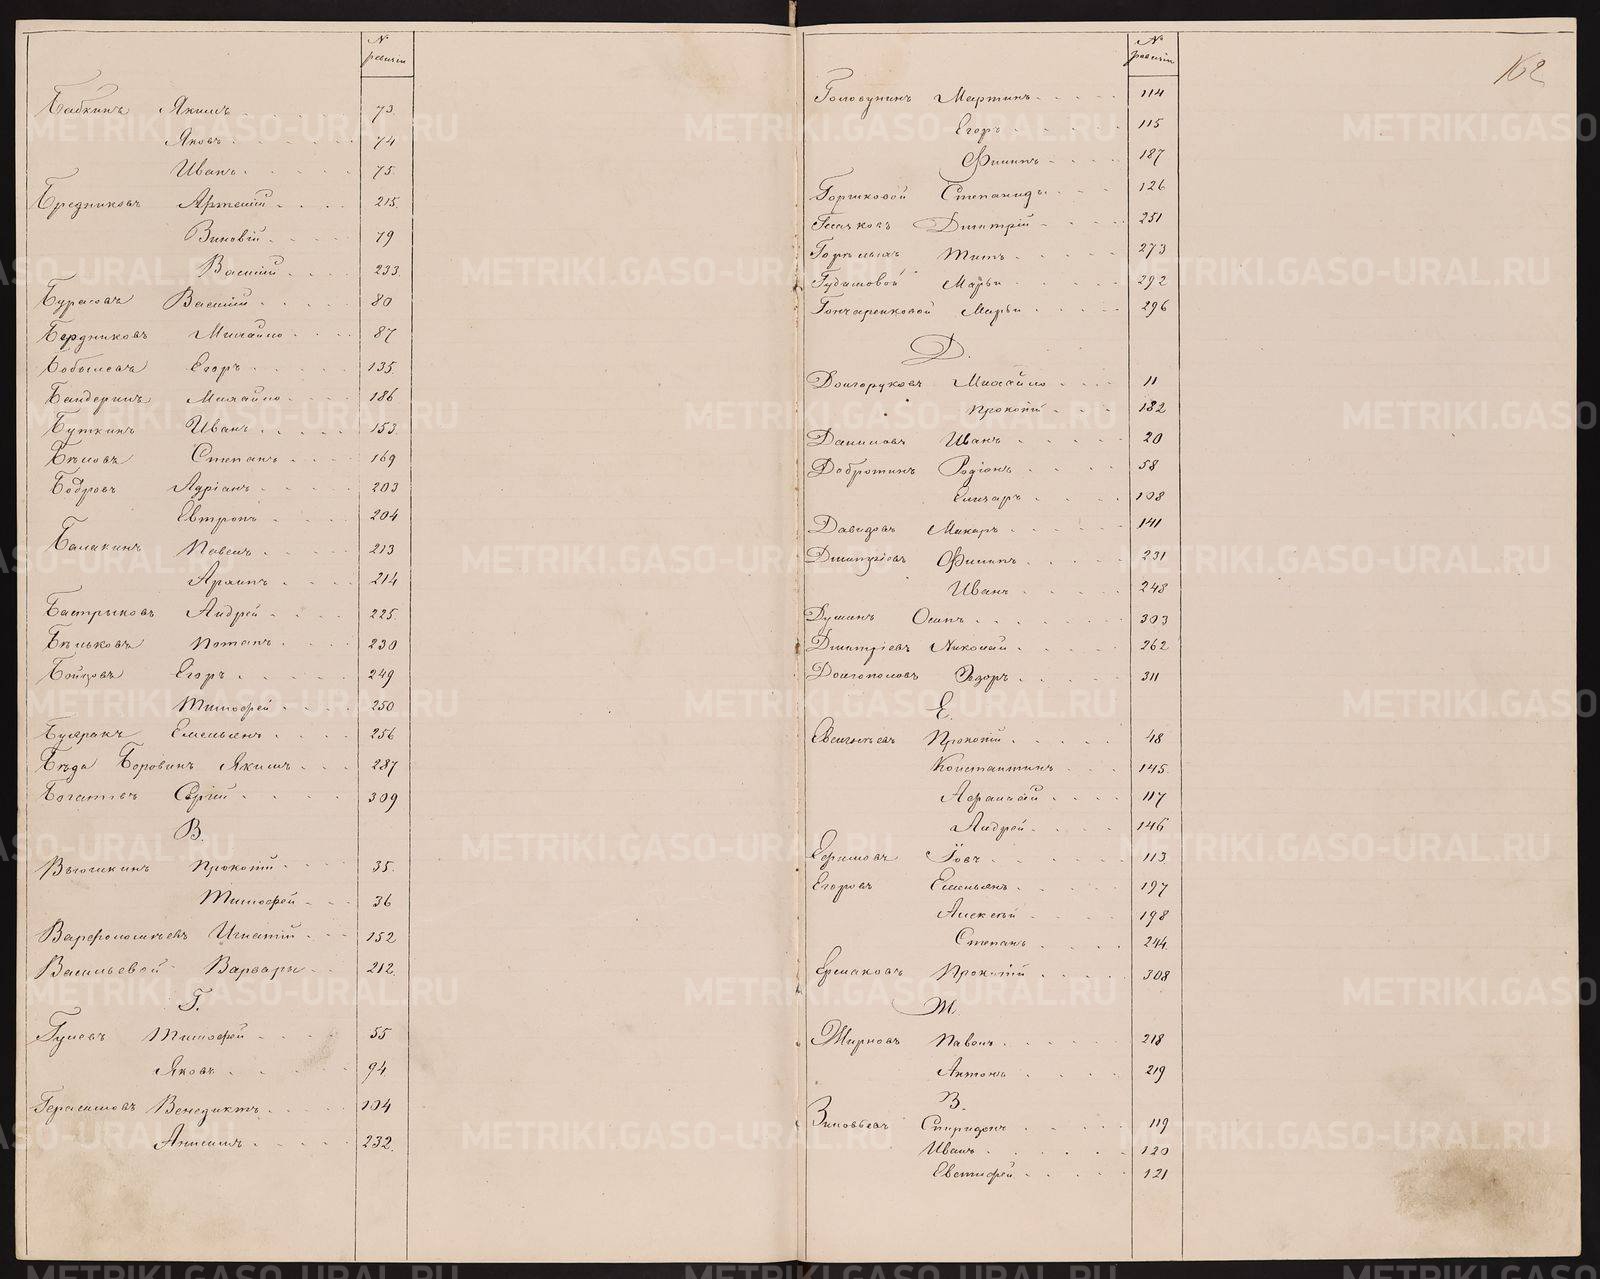 № ревизіи
Бабкинъ Якимъ 73
Яковъ 74
Иванъ 75
Бредниковъ Артемій 215
Зиновій 79
Василій 233
Бурасовъ Василій 80
Бердниковъ Михайло 87
Егоръ 135
Бандеринъ Михайло 186
Буткинъ Иванъ 153
Бѣловъ Степанъ 169
Бобровъ Адріанъ 203
Евтропъ 204
Балакинъ Павелъ 213
Архипъ 214
Бастрыковъ Андрей 225
Бѣльковъ Потапъ 230
Бойцовъ Егоръ 249
Тимофей 250
Буяракъ Емельянъ 256
Бѣда Боровинъ Якимъ 287
Богатовъ Сергій 309
В.
Вьюшкинъ Прокопій 35
Тимофей 36
Варфоломѣевъ Игнатій 152
Васильевой Варвары 212
Г.
Гулевъ Тимофей 55
Яковъ 94
Герасимовъ Венедиктъ 104
Анисимъ 232
№ ревизіи
162
Головунинъ Мартинъ 114
Егоръ 115
Филипъ 187
Горшковой Степанидъ 126
Глачковъ Дмитрій 251
Горѣлыхъ Титъ 273
Гудимовой Марьи 292
Гончаренковой Марьи 296
Д.
Долгоруковъ Михайло 11
Прокопій 182
Даниловъ Иванъ 20
Добротинъ Родіонъ 58
Елизаръ 108
Давидовъ Макаръ 141
Дмитріевъ Филипъ 231
Иванъ 248
Душинъ Осипъ 303
Дмитріевъ Николай 262
Долгополовъ Ѳедоръ 311
Е.
Евсигнѣевъ Прокопій 48
Константинъ 145
Афанасій 117
Андрей 146
Ефимовъ Іовъ 113
Егоровъ Емельянъ 197
Алексѣй 198
Степанъ 244
Ермаковъ Прокопій 308
Ж
Жирновъ Павелъ 218
Антонъ 219
З.
Зиновьевъ Спиридонъ 119
Иванъ 120
Евстифей 121
METRIKI.GASO-URAL.RU